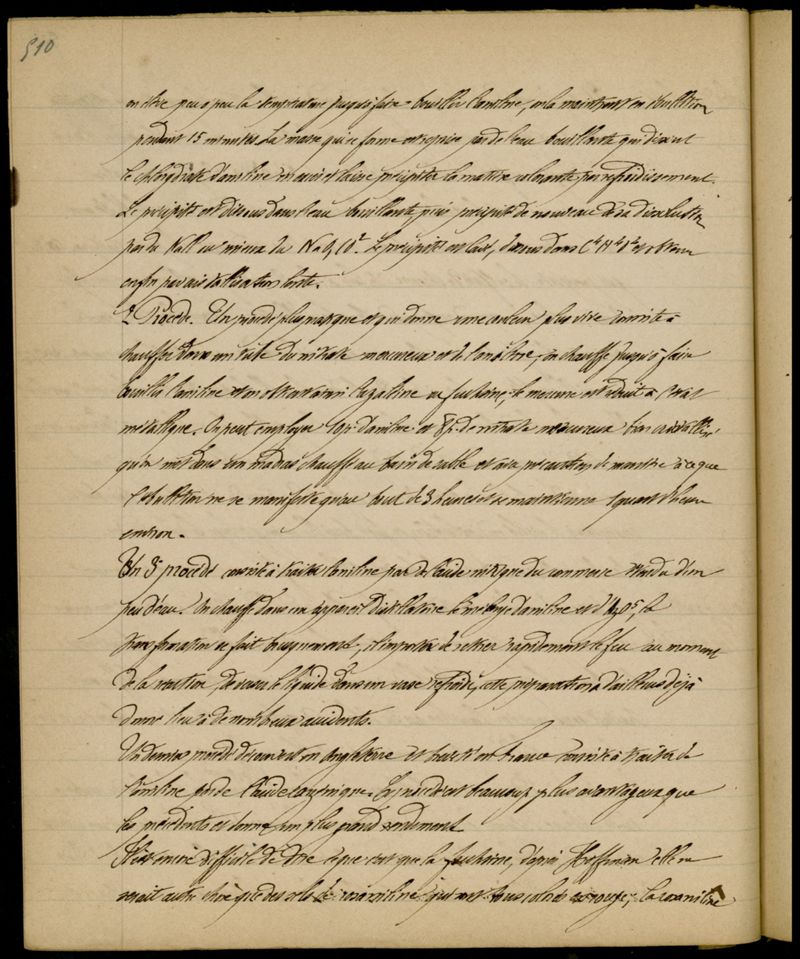 510
on élève peu à peu la température jusqu'à faire bouillir l'aniline, on la maintient en ébullition
pendant 15 minutes. La masse qui se forme est reprise par de l'eau bouillante qui dissout
le chlorhydrate d'aniline et laisse précipiter la matière colorante par refroidissement.
Le précipité est dissous dans l'eau bouillante, puis précipité de nouveau de sa dissolution
par du NaCl ou mieux du NaO, CO². Le précipité est lavé, dissous dans C⁴H⁶O² et obtenu
enfin par cristallisation lente.
2e Procédé. Un procédé plus pratique et qui donne une couleur plus vive consiste à
chauffer dans un tube du nitrate mercureux et de l'aniline; on chauffe jusqu'à faire
bouillir l'aniline et on obtient ainsi l'azaléine ou fuchsine; le mercure est réduit à l'état
métallique. On peut employer 10p. d'aniline et 8p. de nitrate mercureux bien cristallisé
qu'on met dans un matras chauffé au bain de sable et avec précaution de manière à ce que
l'ébullition ne se manifeste qu'au bout de 3 heures et se maintienne 1 quart d'heure
environ.
Un 3e procédé consiste à traiter l'aniline par de l'acide nitrique du commerce étendu d'un
peu d'eau. On chauffe dans un appareil distillatoire le mélange d'aniline et d'AzO⁵, la
transformation se fait brusquement, il importe de retirer rapidement le feu au moment
de la réaction, de verser le liquide dans un vase refroidi, cette préparation a d'ailleurs déjà
donné lieu à de nombreux accidents.
Un dernier procédé découvert en Angleterre et breveté en France consiste à traiter de
l'aniline par de l'acide arsénique. Ce procédé est beaucoup plus avantageux que
les précédents et donne un plus grand rendement.
Il est encore difficile de dire ce que c'est que la fuchsine, d'après Hoffman elle ne
serait autre chose que des sels de rosaniline qui sont tous colorés en rouge; la rosaniline